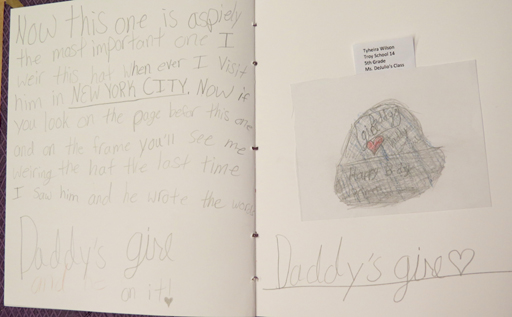 NOW this one is aspiely
the most important one I
weir this hat when ever I visit
him in NEW YORK CITY. Now if
you look on the page befor this one
and on the frame you'll see me
weiring the hat the last time
I saw him and he wrote the words
Daddy's girl
and
on it!
Tyherra Wilson
Troy School 14
5th Grade
Ms. DeJulio's Class
Happy
Daddy's girl